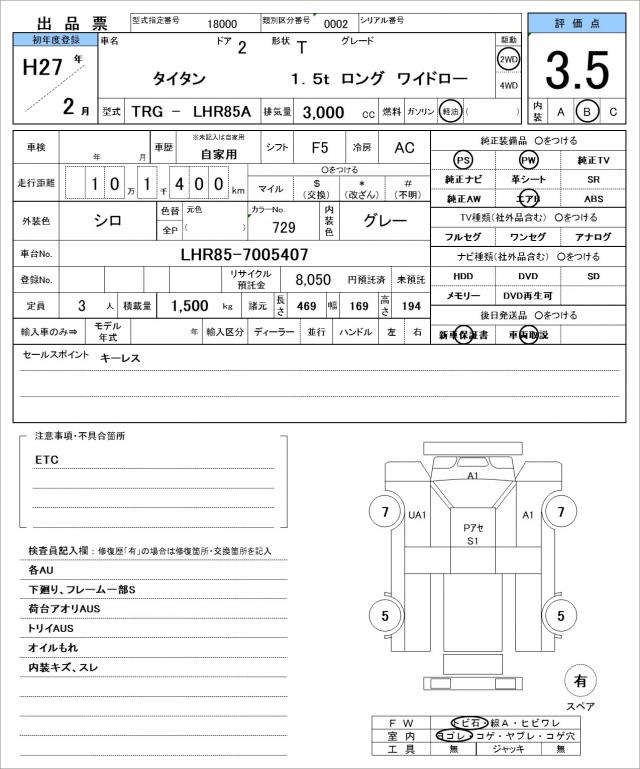 出品票 型式指定番号 18000 類別区分番号 0002 シリアル番号 評価点
初年度登録 車名 ドア 2 形状 T グレード 駆動
H27 年 2WD 3.5
タイタン 1.5t ロング ワイドロー 4WD
2 月 型式 TRG － LHR85A 排気量 3,000 cc 燃料 ガソリン 軽油 ( ) 内装 A B C
車検 年 月 車歴 ※未記入は自家用 自家用 シフト F5 冷房 AC 純正装備品 〇をつける
PS PW 純正TV
走行距離 1 0 万 1 千 4 0 0 km 〇をつける
マイル $ (交換) * (改ざん) # (不明) 純正ナビ 革シート SR
純正AW エアB ABS
外装色 シロ 色替 元色 カラーNo. 内装色 グレー TV種類(社外品含む) 〇をつける
全P ( ) 729 フルセグ ワンセグ アナログ
車台No. LHR85-7005407 ナビ種類(社外品含む) 〇をつける
登録No. リサイクル預託金 8,050 円預託済 未預託 HDD DVD SD
定員 3 人 積載量 1,500 kg 諸元 長さ 469 幅 169 高さ 194 メモリー DVD再生可
後日発送品 〇をつける
輸入車のみ⇒ モデル年式 年 輸入区分 ディーラー 並行 ハンドル 左 右 新車保証書 車両取説
セールスポイント キーレス
注意事項・不具合箇所
ETC
検査員記入欄：修復歴「有」の場合は修復箇所・交換箇所を記入
各AU
下廻り、フレーム一部S
荷台アオリAUS
トリイAUS
オイルもれ
内装キズ、スレ
A1
7 UA1 Pアセ A1 7
S1
5 5
有
スペア
FW トビ石・線A・ヒビワレ
室内 ヨゴレ・コゲ・ヤブレ・コゲ穴
工具 無 ジャッキ 無